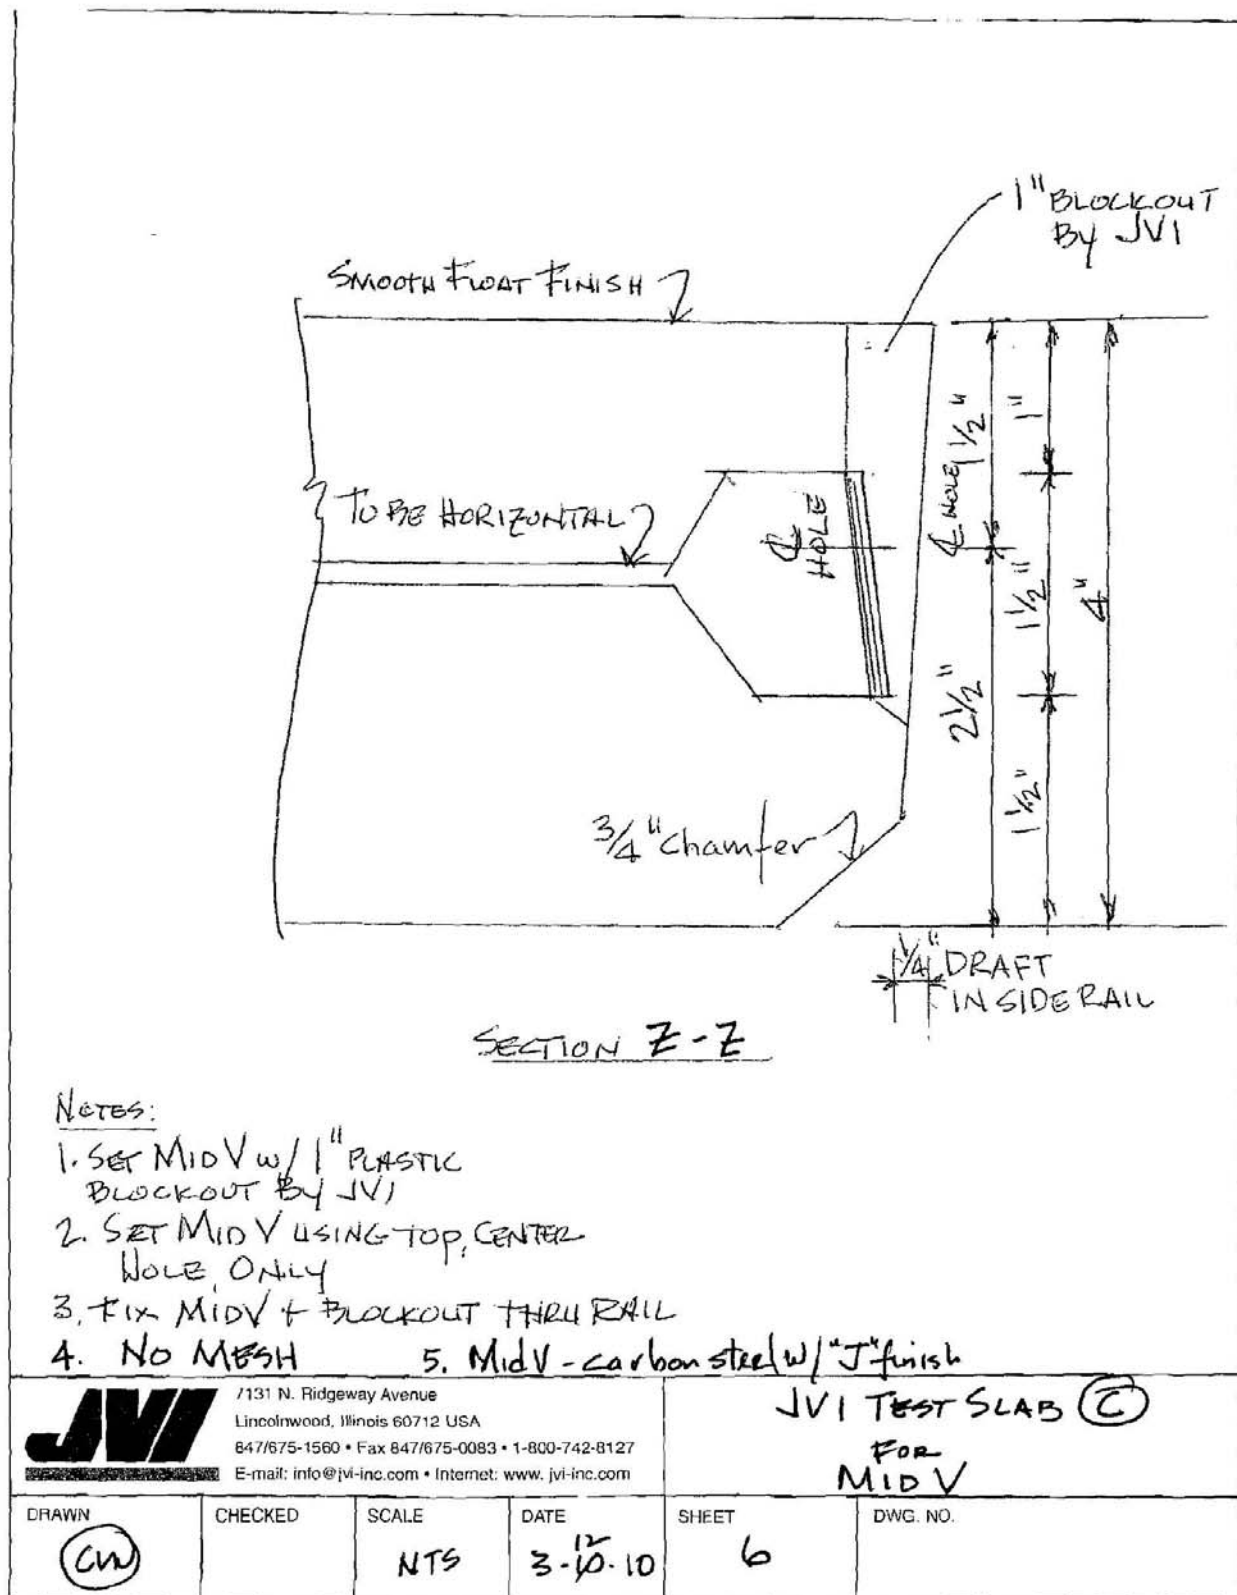 1" BLOCKOUT
BY JVI
SMOOTH FLOAT FINISH
TO BE HORIZONTAL
℄
HOLE
℄ HOLE
1 1/2"
1"
1 1/2"
4"
2 1/2"
1 1/2"
3/4" Chamfer
1/4" DRAFT
IN SIDE RAIL
SECTION Z-Z
NOTES:
1. SET MID V W/ 1" PLASTIC
BLOCKOUT BY JVI
2. SET MID V USING TOP, CENTER
HOLE, ONLY
3. FIX MIDV + BLOCKOUT THRU RAIL
4. NO MESH 5. MidV - carbon steel w/ "J" finish
JVI
7131 N. Ridgeway Avenue
Lincolnwood, Illinois 60712 USA
847/675-1560 • Fax 847/675-0083 • 1-800-742-8127
E-mail: info@jvi-inc.com • Internet: www. jvi-inc.com
JVI TEST SLAB C
FOR
MID V
DRAWN CHECKED SCALE DATE SHEET DWG. NO.
CW NTS 3-12-10 6